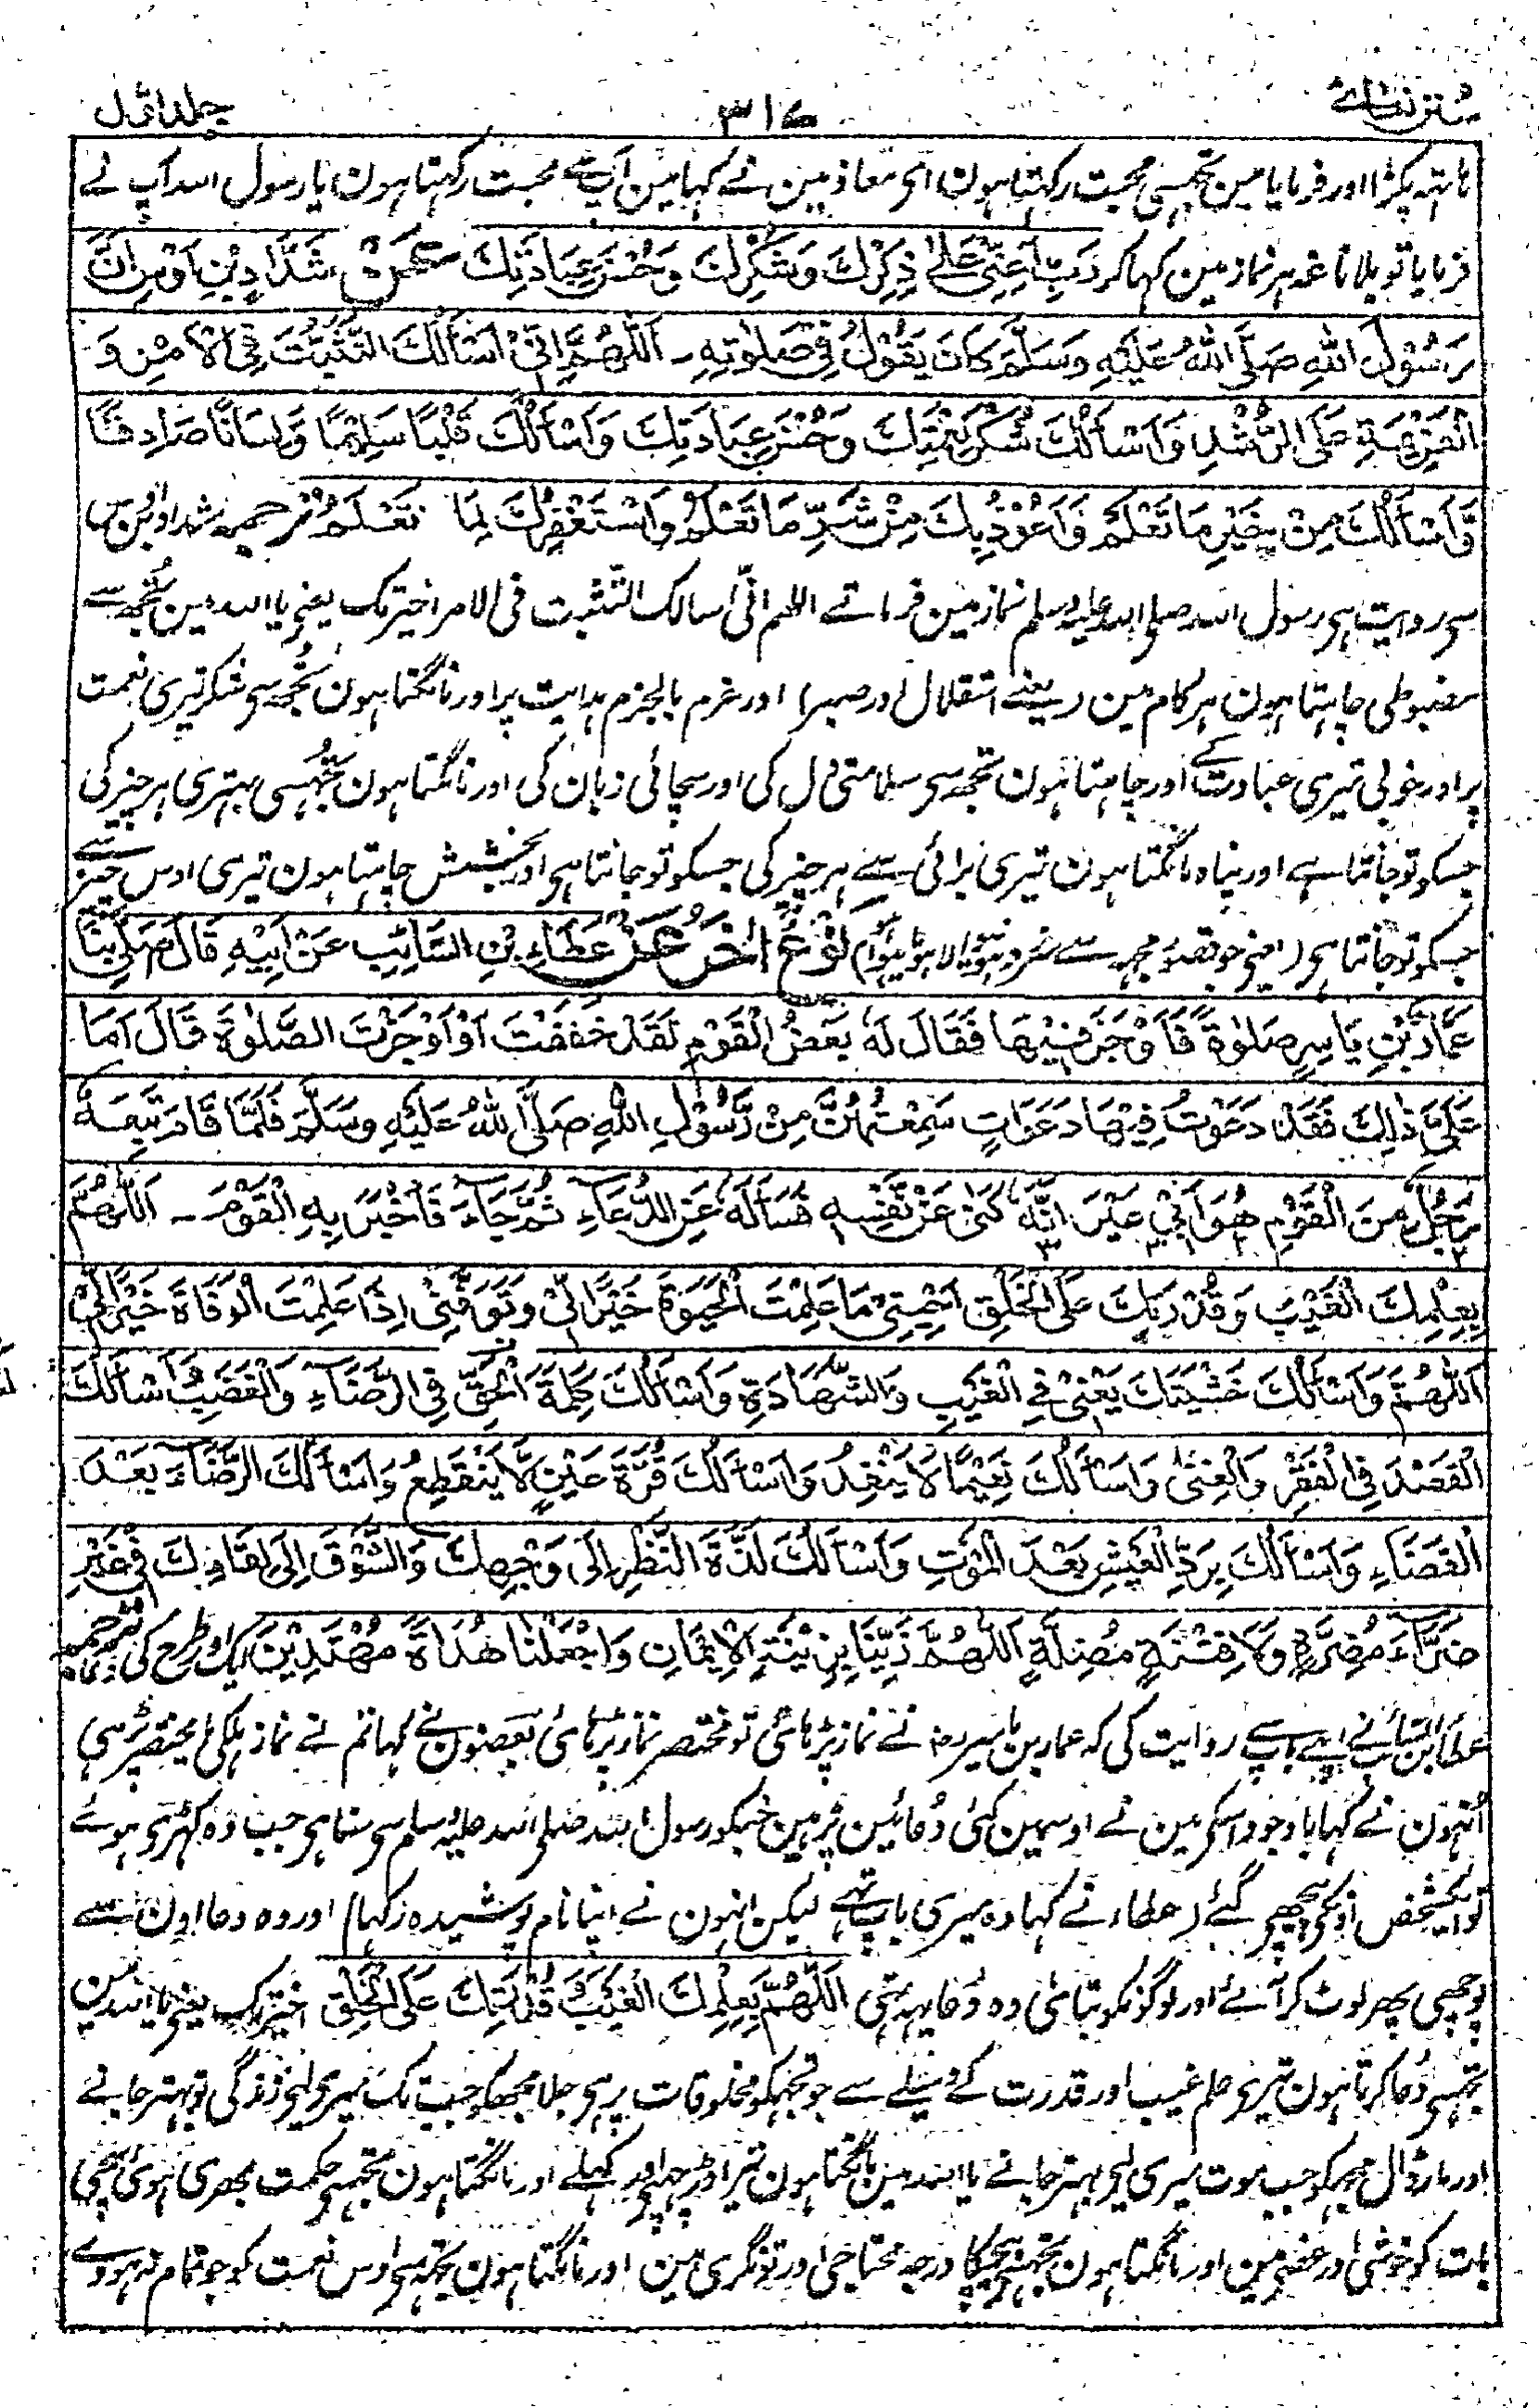 سنن نسائے
۳۱۶
جلد اول
ہاتہہ پکڑا اور فرمایا مین تجھسی محبت رکہتا ہون ای معاذ مین نے کہا مین آپ سے محبت رکہتا ہون یا رسول اللہ آپ نے
فرمایا تو بلا ناغہ ہر نماز مین کہا کر رَبِّ اَعِنِّیْ عَلٰی ذِكْرِكَ وَشُكْرِكَ وَحُسْنِ عِبَادَتِكَ عَنْ شَدَّادِ بْنِ اَوْسٍ اَنَّ
رَسُوْلَ اللهِ صَلَّى اللهُ عَلَيْهِ وَسَلَّمَ كَانَ يَقُوْلُ فِيْ صَلٰوتِهٖ ۔ اَللّٰهُمَّ اِنِّيْ اَسْأَلُكَ التَّثَبُّتَ فِي الْاَمْرِ وَ
الْعَزِيْمَةِ عَلَى الرُّشْدِ وَاَسْأَلُكَ شُكْرَ نِعْمَتِكَ وَحُسْنَ عِبَادَتِكَ وَاَسْأَلُكَ قَلْبًا سَلِيْمًا وَّلِسَانًا صَادِقًا
وَّاَسْأَلُكَ مِنْ خَيْرِ مَا تَعْلَمُ وَاَعُوْذُ بِكَ مِنْ شَرِّ مَا تَعْلَمُ وَاسْتَغْفِرُكَ لِمَا تَعْلَمُ ترجمہ شداد بن اوس
سی روایت ہی رسول اللہ صلی اللہ علیہ وسلم نماز مین فرماتے اللہم انی اسالک التثبت فی الامر اخیر تک یعنی یا اللہ مین تجھ سے
مضبوطی چاہتا ہون ہر کام مین (یعنے استقلال اور صبر) اور عزم بالجزم ہدایت پر اور مانگتا ہون تجھ سی شکر تیری نعمت
پر اور خوبی تیری عبادت کے اور چاہتا ہون تجھ سی سلامتی دل کی اور سچائی زبان کی اور مانگتا ہون تجھسی بہتری ہر چیز کی
جسکو تو جانتا ہے اور پناہ مانگتا ہون تیری برائی سے ہر چیز کی جسکو تو جانتا ہی اور بخشش چاہتا ہون تیری اوس چیز سے
جسکو تو جانتا ہی (یعنی جو قصور مجہہ سے سرزد ہوا) نَوْعٌ اٰخَرُ عَنْ عَطَاءِ بْنِ السَّائِبِ عَنْ اَبِيْهِ قَالَ صَلّٰى بِنَا
عَمَّارُ بْنُ يَاسِرٍ صَلٰوةً فَاَوْجَزَ فِيْهَا فَقَالَ لَهٗ بَعْضُ الْقَوْمِ لَقَدْ خَفَّفْتَ اَوْ اَوْجَزْتَ الصَّلٰوةَ قَالَ اَمَا
عَلٰى ذٰلِكَ فَقَدْ دَعَوْتُ فِيْهَا دَعَوَاتٍ سَمِعْتُهُنَّ مِنْ رَّسُوْلِ اللهِ صَلَّى اللهُ عَلَيْهِ وَسَلَّمَ فَلَمَّا قَامَ تَبِعَهٗ
رَجُلٌ مِّنَ الْقَوْمِ هُوَ اَبِيْ غَيْرَ اَنَّهٗ كَنٰى عَنْ نَّفْسِهٖ فَسَأَلَهٗ عَنِ الدُّعَاءِ ثُمَّ جَاءَ فَاَخْبَرَ بِهِ الْقَوْمَ ۔ اَللّٰهُمَّ
بِعِلْمِكَ الْغَيْبَ وَقُدْرَتِكَ عَلَى الْخَلْقِ اَحْيِنِيْ مَا عَلِمْتَ الْحَيٰوةَ خَيْرًا لِّيْ وَتَوَفَّنِيْ اِذَا عَلِمْتَ الْوَفَاةَ خَيْرًا لِّيْ
اَللّٰهُمَّ وَاَسْأَلُكَ خَشْيَتَكَ يَعْنِيْ فِي الْغَيْبِ وَالشَّهَادَةِ وَاَسْأَلُكَ كَلِمَةَ الْحَقِّ فِي الرِّضَاءِ وَالْغَضَبِ وَاَسْأَلُكَ
الْقَصْدَ فِي الْفَقْرِ وَالْغِنٰى وَاَسْأَلُكَ نَعِيْمًا لَا يَنْفَدُ وَاَسْأَلُكَ قُرَّةَ عَيْنٍ لَّا يَنْقَطِعُ وَاَسْأَلُكَ الرِّضَاءَ بَعْدَ
الْقَضَاءِ وَاَسْأَلُكَ بَرْدَ الْعَيْشِ بَعْدَ الْمَوْتِ وَاَسْأَلُكَ لَذَّةَ النَّظَرِ اِلٰى وَجْهِكَ وَالشَّوْقَ اِلٰى لِقَائِكَ فِيْ غَيْرِ
ضَرَّاءَ مُضِرَّةٍ وَلَا فِتْنَةٍ مُضِلَّةٍ اَللّٰهُمَّ زَيِّنَّا بِزِيْنَةِ الْاِيْمَانِ وَاجْعَلْنَا هُدَاةً مُّهْتَدِيْنَ ایک اور طرح کی دعا ترجمہ
عطا بن السائب نے اپنے باپ سے روایت کی کہ عمار بن یاسر رض نے نماز پڑہائی تو مختصر نماز پڑہائی بعضون نے کہا تم نے نماز ہلکی یا مختصر پڑہی
اُنہون نے کہا باوجود اسکی مین نے اوسمین کئی دُعائین پڑہین جنکو رسول اللہ صلی اللہ علیہ وسلم سی سنا ہی جب وہ کہڑی ہوئے
تو ایک شخص اونکی پیچھی گئے (عطاء نے کہا وہ میری باپ تہے لیکن انہون نے اپنا نام پوشیدہ رکہا) اور وہ دعا اون سے
پوچھی پھر لوٹ کر آئے اور لوگونکو بتائی وہ دُعا یہہ تہی اَللّٰهُمَّ بِعِلْمِكَ الْغَيْبَ وَقُدْرَتِكَ عَلَى الْخَلْقِ اخیر تک یعنی یا اللہ مین
تجھسی دُعا کرتا ہون تیری علم غیب اور قدرت کے وسیلے سے جو تجہکو مخلوقات پر ہی جلا مجھکو جب تک میری لیے زندگی تو بہتر جانے
اور مار ڈال مجہکو جب موت میری لیے بہتر جانے یا اللہ مین مانگتا ہون تیرا ڈر چہپی اور کہلے اور مانگتا ہون تجھسی حکمت بھری ہوئی سچی
بات کو خوشی اور غصے مین اور مانگتا ہون تجھسی بیچ کا درجہ محتاجی اور تونگری مین اور مانگتا ہون تجھ سی اوس نعمت کو جو تمام نہ ہووے